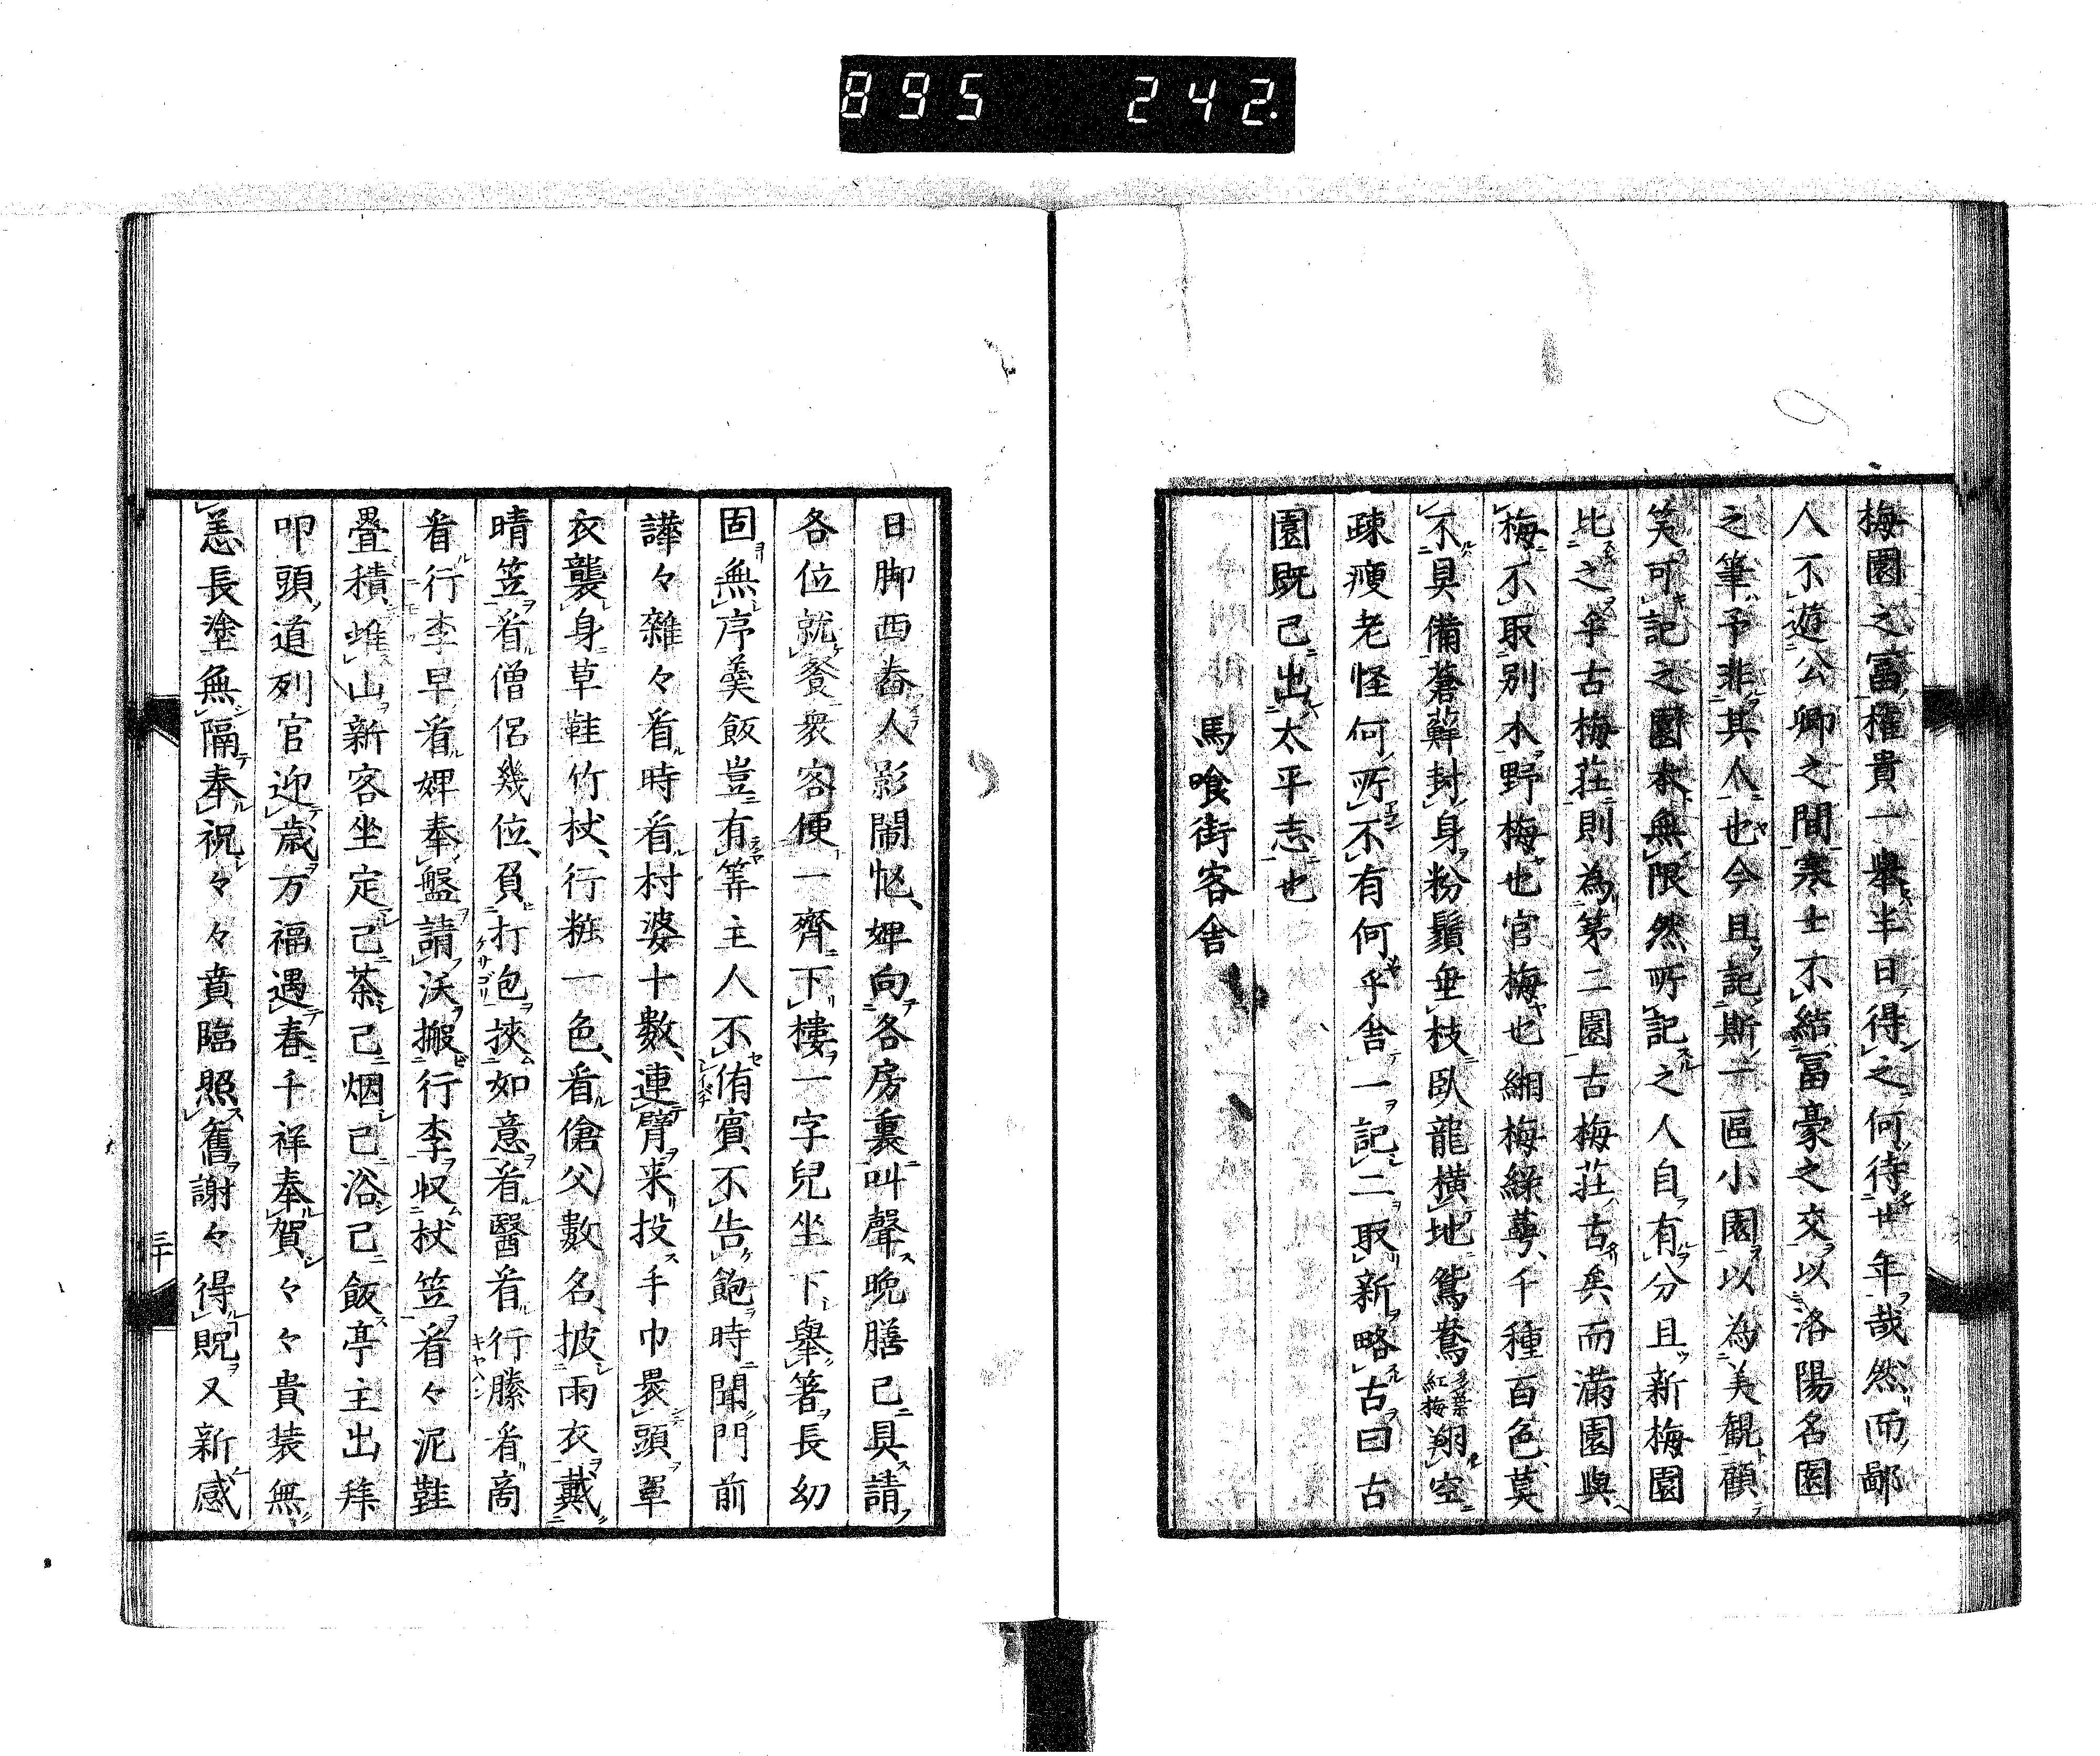 895 242.
梅園之富權貴一舉半日得之何待廿年哉然而鄙
人不遊公卿之間寒士不結冨豪之交以洛陽名園
之筆予非其人也今且記斯一區小園以為美観顧
笑可記之園本無限然所記之人自有分且新梅園
比之乎古梅莊則為第二園古梅莊古矣而滿園與
梅不取別木野梅也官梅也緗梅綠萼千種百色莫
不具備蒼蘚封身粉鬚垂枝臥龍橫地鴛鴦多葉紅梅翔空
疎瘦老怪何所不有何乎舍一記二取新略古曰古
園既已出太平志也
馬喰街客舍
日脚西舂人影鬧忙婢向各房裏叫聲晚膳已具請
各位就餐衆客便一齊下樓一字兒坐下舉箸長幼
固無序羹飯豈有筭主人不侑賓不告飽時聞門前
譁々雜々看時看村婆十數連臂来投手巾裹頭單
衣襲身草鞋竹杖行粧一色看傖父數名披雨衣戴
晴笠看僧侶幾位負打包挾如意看醫看行縢看商
看行李早看婢奉盤請沃搬行李収杖笠看々泥鞋
疊積堆山新客坐定已茶已烟已浴已飯亭主出拜
叩頭道列官迎歳万福遇春千祥奉賀々々貴装無
恙長塗無隔奉祝々々賁臨照舊謝々得貺又新感
三十